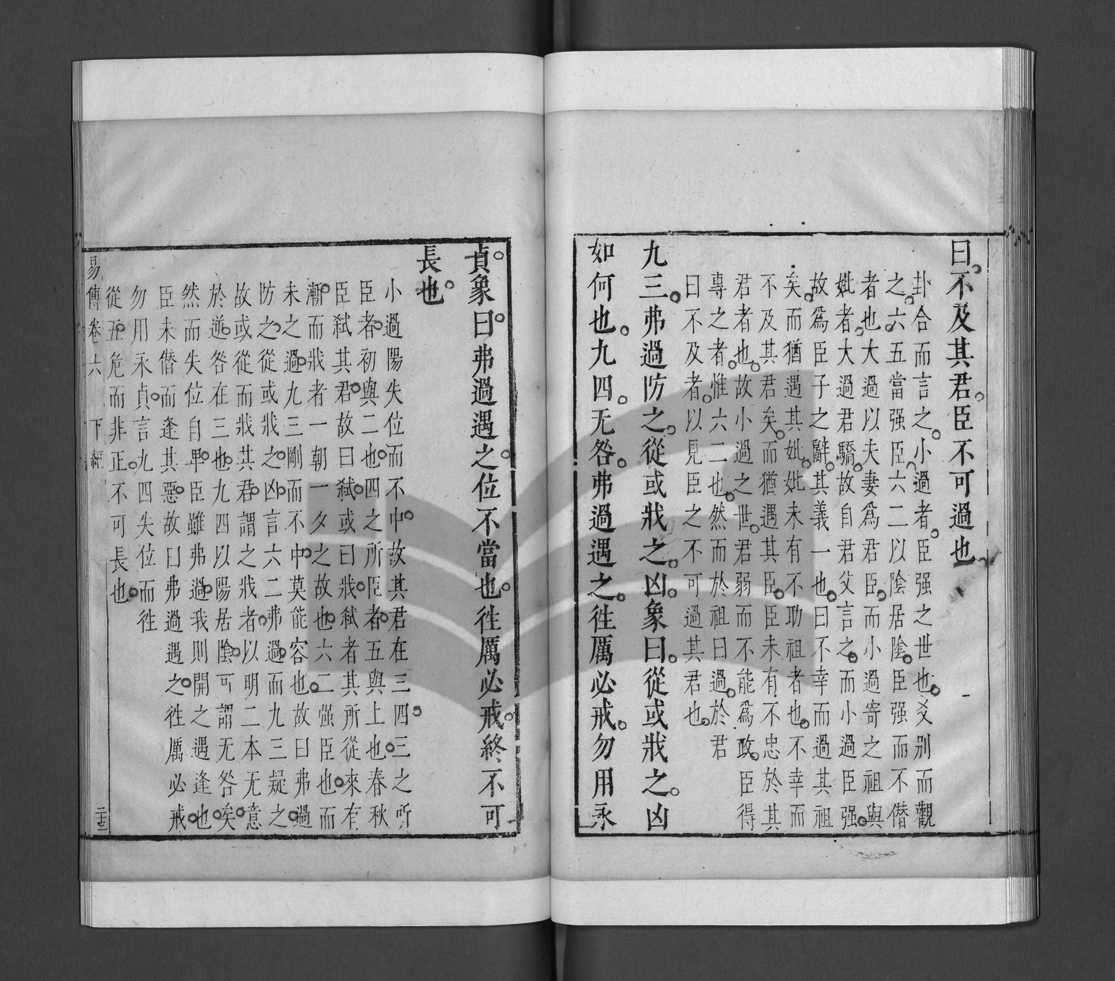 曰不及其君臣不可過也
卦合而言之小過者臣强之世也爻别而觀
之六五當强臣六二以陰居陰臣强而不僭
者也大過以夫妻為君臣而小過寄之祖與
妣者大過君驕故自君父言之而小過臣强
故為臣子之辭其義一也曰不幸而過其祖
矣而猶遇其妣妣未有不助祖者也不幸而
不及其君矣而猶遇其臣臣未有不忠於其
君者也故小過之世君弱而不能為政臣得
專之者惟六二也然而於祖曰過於君
曰不及者以見臣之不可過其君也
九三弗過防之從或戕之凶象曰從或戕之凶
如何也九四无咎弗過遇之徃厲必戒勿用永
貞象曰弗過遇之位不當也徃厲必戒終不可
長也
小過陽失位而不中故其君在三四三之所
臣者初與二也四之所臣者五與上也春秋
臣弑其君故曰弑或曰戕弑者其所從來有
漸而戕者一朝一夕之故也六二强臣也而
未之過九三剛而不中莫能容也故曰弗過
防之從或戕之凶言六二弗過而九三疑之
故或從而戕其君謂之戕者以明二本无意
於逆咎在三也九四以陽居陰可謂无咎矣
然而失位自卑臣雖弗過我則開之遇逢也
臣未僭而逢其惡故曰弗過遇之徃厲必戒
勿用永貞言九四失位而徃
從五危而非正不可長也
易傳卷六 下經 二十三